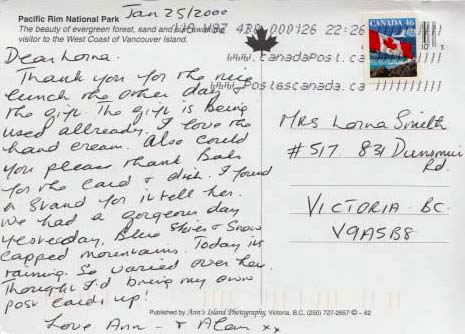 Pacific Rim National Park
Jan 25/2000
The beauty of evergreen forest, sand and surf await the
visitor to the West Coast of Vancouver Island.
000126 22:26
www.canadapost.ca
Dear Lorna.
Thank you for the nice
lunch the other day +
the gift. The gift is being
used allready. I love the
hand cream. Also could
you please thank Babs
for the card + dish. I found
a stand for it tell her.
We had a gorgeous day
yesterday. Blue Skies + Snow
capped mountains. Today its
raining. So varied over here.
Thought I'd bring my own
post cards up!
Love Ann - + Alan xx
CANADA 46
Mrs Lorna Smith
#517 831 Dunsmuir
Rd.
VICTORIA BC.
V9A5B8
Published by Ann's Island Photography, Victoria, B.C. (250) 727-2657 © - 62